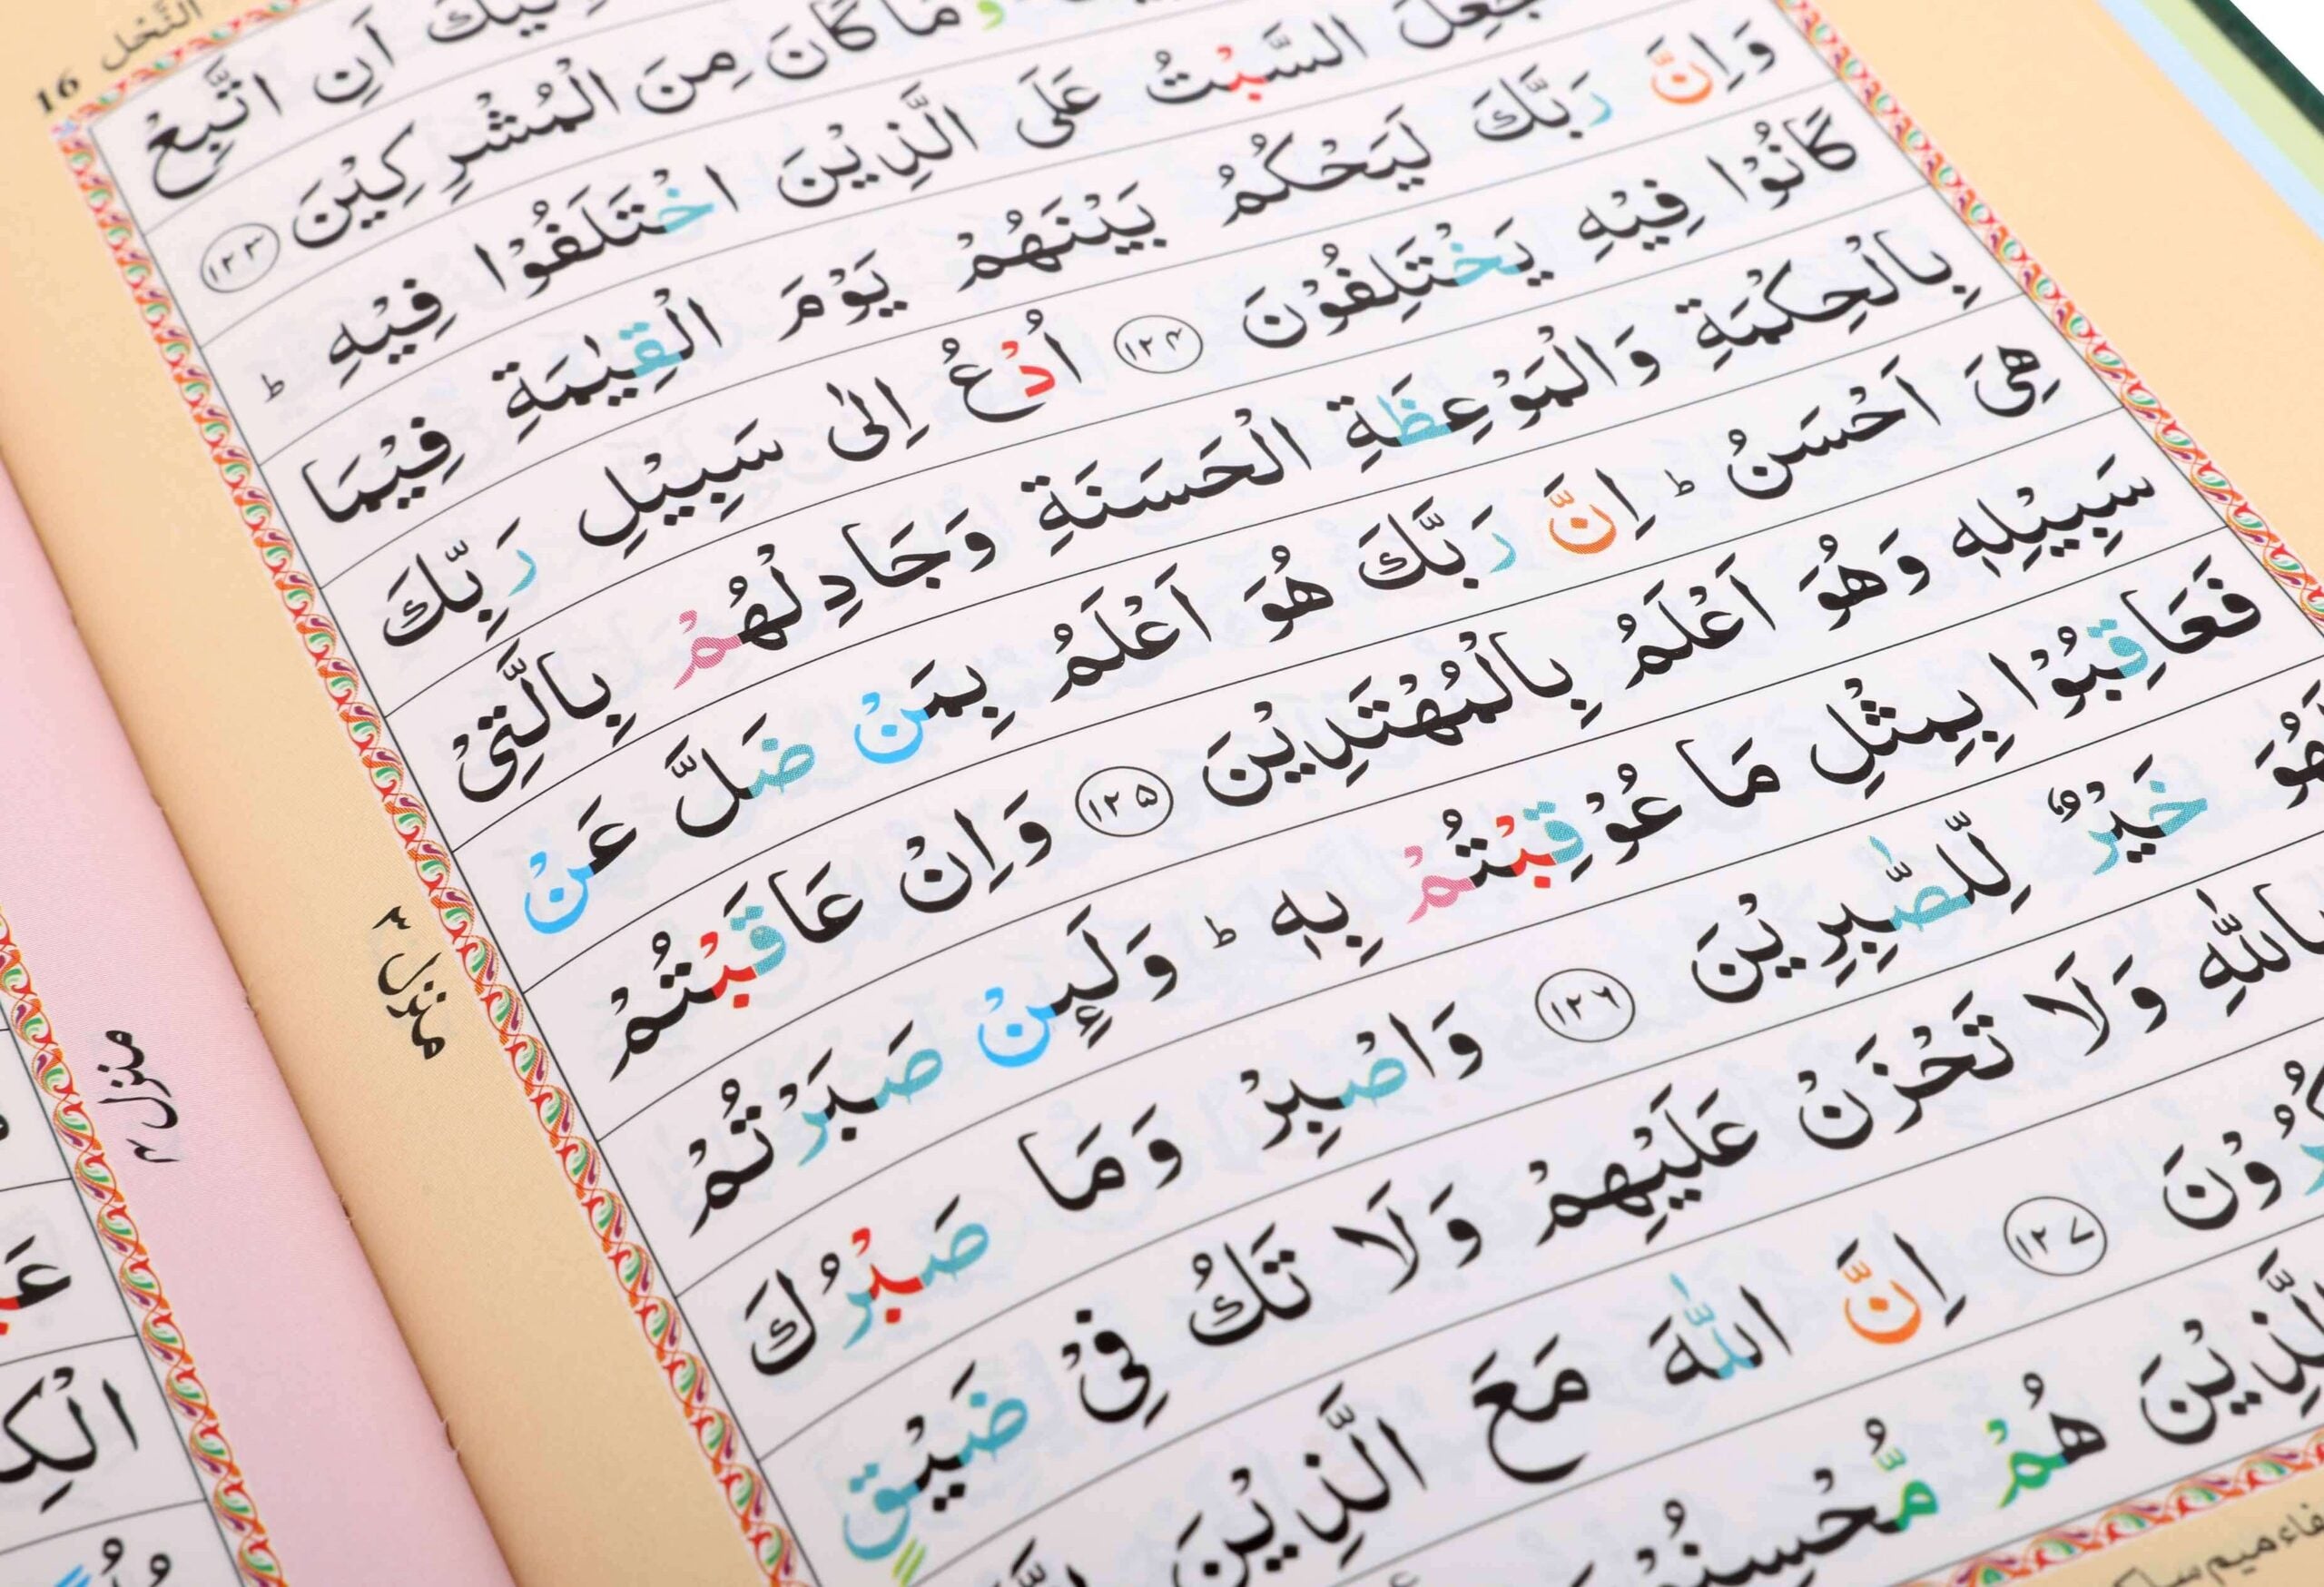 النَّحل 16
اَنِ اتَّبِعْ
مَا كَانَ مِنَ الْمُشْرِكِيْنَ ١٢٣
جُعِلَ السَّبْتُ عَلَى الَّذِيْنَ اخْتَلَفُوْا فِيْهِ ؕ
وَاِنَّ رَبَّكَ لَيَحْكُمُ بَيْنَهُمْ يَوْمَ الْقِيٰمَةِ فِيْمَا
كَانُوْا فِيْهِ يَخْتَلِفُوْنَ ١٢٤ اُدْعُ اِلٰى سَبِيْلِ رَبِّكَ
بِالْحِكْمَةِ وَالْمَوْعِظَةِ الْحَسَنَةِ وَجَادِلْهُمْ بِالَّتِيْ
هِيَ اَحْسَنُ ؕ اِنَّ رَبَّكَ هُوَ اَعْلَمُ بِمَنْ ضَلَّ عَنْ
سَبِيْلِهٖ وَهُوَ اَعْلَمُ بِالْمُهْتَدِيْنَ ١٢٥ وَاِنْ عَاقَبْتُمْ
فَعَاقِبُوْا بِمِثْلِ مَا عُوْقِبْتُمْ بِهٖ ؕ وَلَىِٕنْ صَبَرْتُمْ
لَهُوَ خَيْرٌ لِّلصّٰبِرِيْنَ ١٢٦ وَاصْبِرْ وَمَا صَبْرُكَ
بِاللّٰهِ وَلَا تَحْزَنْ عَلَيْهِمْ وَلَا تَكُ فِيْ ضَيْقٍ
١٢٧ اِنَّ اللّٰهَ مَعَ الَّذِيْنَ
الَّذِيْنَ هُمْ مُّحْسِنُوْنَ
منزل ٣
منزل ٣